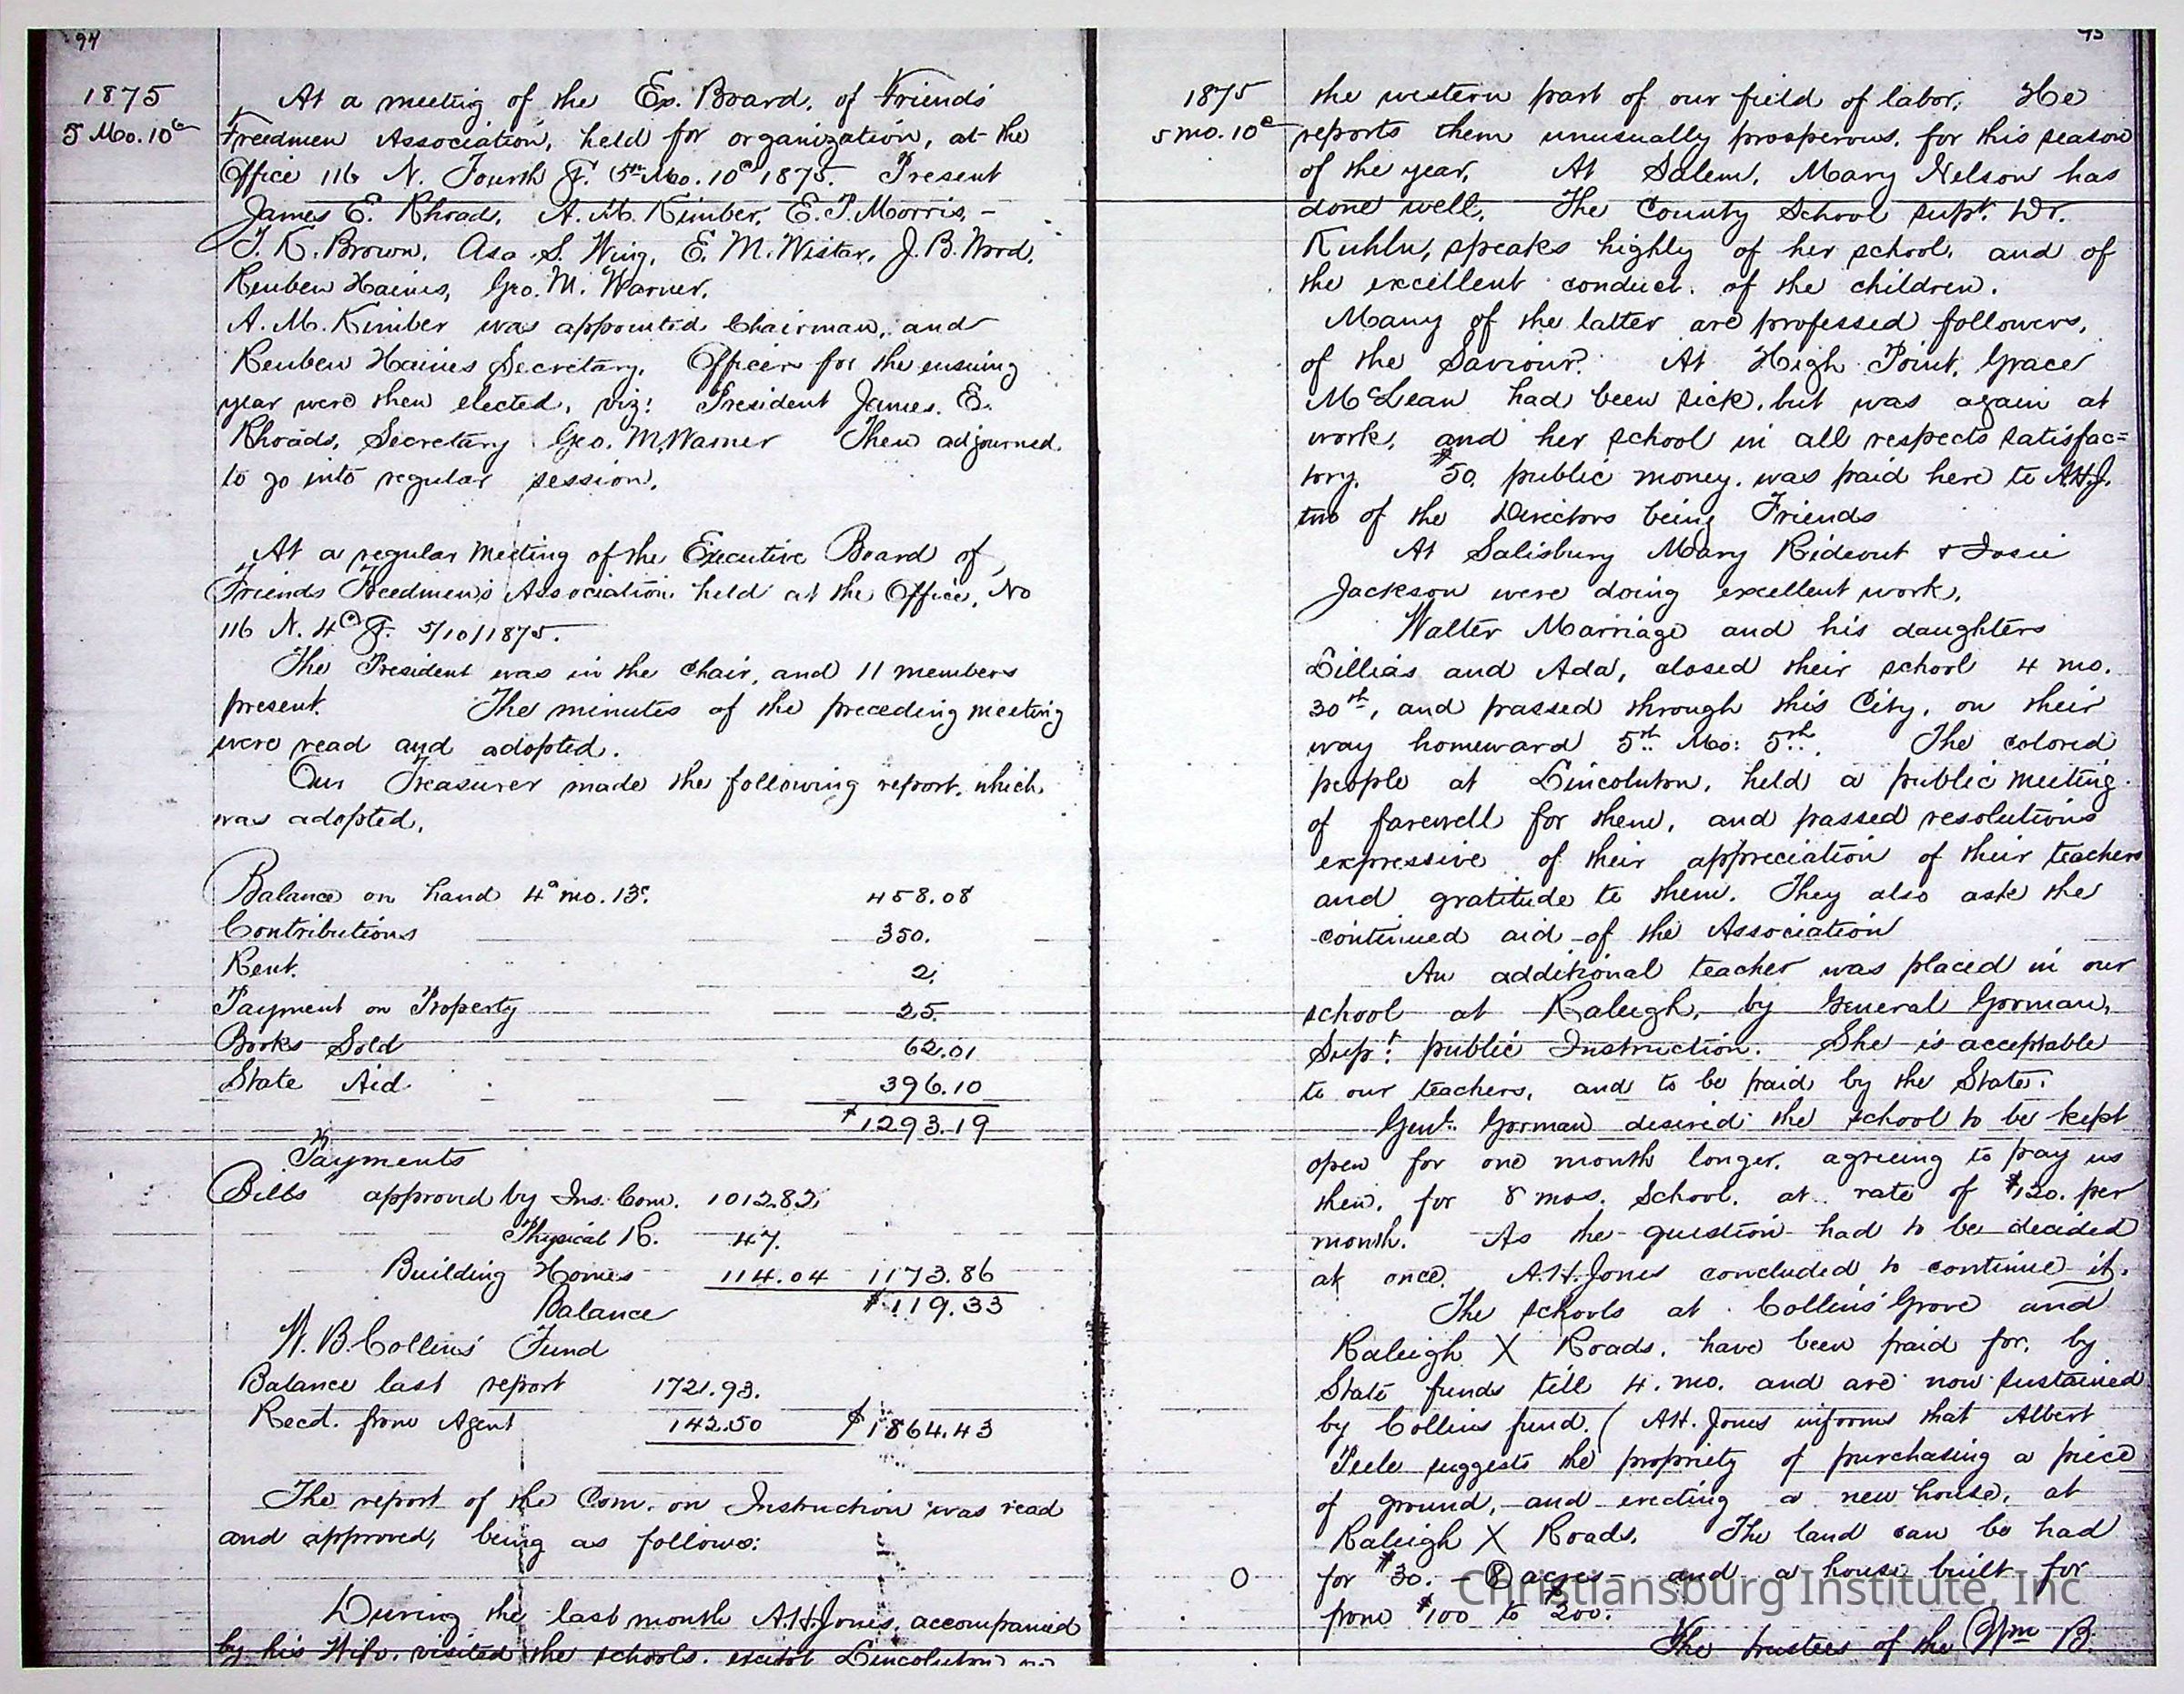 94
1875
5 Mo. 10th
At a meeting of the Ex. Board, of Friends
Freedmen Association, held for organization, at the
Office 116 N. Fourth St. 5th Mo. 10th 1875. Present
James E. Rhoads, A. M. Kimber, E. P. Morris, -
T. K. Brown, Asa S. Wing, E. M. Wistar, J. B. Wood,
Reuben Haines, Geo. M. Warner.
A. M. Kimber was appointed Chairman, and
Reuben Haines Secretary. Officers for the ensuing
year were then elected, viz: President James. E.
Rhoads, Secretary Geo. M. Warner Then adjourned
to go into regular session.
At a regular meeting of the Executive Board of
Friends Freedmen's Association held at the Office, No
116 N. 4th St. 5/10/1875.
The President was in the Chair, and 11 members
present. The minutes of the preceding meeting
were read and adopted.
Our Treasurer made the following report, which
was adopted.
Balance on hand 4th mo. 13th. 458.08
Contributions 350.
Rent. 2.
Payment on Property 25.
Books Sold 62.01
State Aid 396.10
$1293.19
Payments
Bills approved by Ins. Com. 1012.82
Physical R. 47.
Building Homes 114.04 1173.86
Balance $119.33
W. B. Collins' Fund
Balance last report 1721.93.
Recd. from Agent 142.50 $1864.43
The report of the Com. on Instruction was read
and approved, being as follows:
During the last month A.H. Jones, accompanied
by his Wife, visited the schools, except Lincolnton
95
1875
5 mo. 10th
the western part of our field of labor. He
reports them unusually prosperous, for this season
of the year. At Salem, Mary Nelson has
done well. The County School Supt. Dr.
Kuhln, speaks highly of her school, and of
the excellent conduct of the children.
Many of the latter are professed followers,
of the Saviour. At High Point, Grace
McLean had been sick, but was again at
work, and her school in all respects satisfac=
tory. $50. public money was paid here to A.H.J.
two of the Directors being Friends
At Salisbury Mary Rideout & Josie
Jackson were doing excellent work.
Walter Marriage and his daughters
Lillias and Ada, closed their school 4 mo.
30th, and passed through this City, on their
way homeward 5th Mo: 5th. The colored
people at Lincolnton, held a public meeting
of farewell for them, and passed resolutions
expressive of their appreciation of their teachers
and gratitude to them. They also ask the
continued aid of the Association
An additional teacher was placed in our
school at Raleigh, by General Gorman,
Supt. public Instruction. She is acceptable
to our teachers, and to be paid by the State.
Genl. Gorman desired the school to be kept
open for one month longer, agreeing to pay us
then, for 8 mos. School, at rate of $120. per
month. As the question had to be decided
at once, A.H. Jones concluded to continue it.
The schools at Collins' Grove and
Raleigh X Roads, have been paid for, by
State funds till 4. mo. and are now sustained
by Collins fund. (A.H. Jones informs that Albert
Peele suggests the propriety of purchasing a piece
of ground, and erecting a new house, at
Raleigh X Roads. The land can be had
for $30. - 8 acres - and a house built for
from $100 to $200.
The trustees of the Wm B.
Christiansburg Institute, Inc